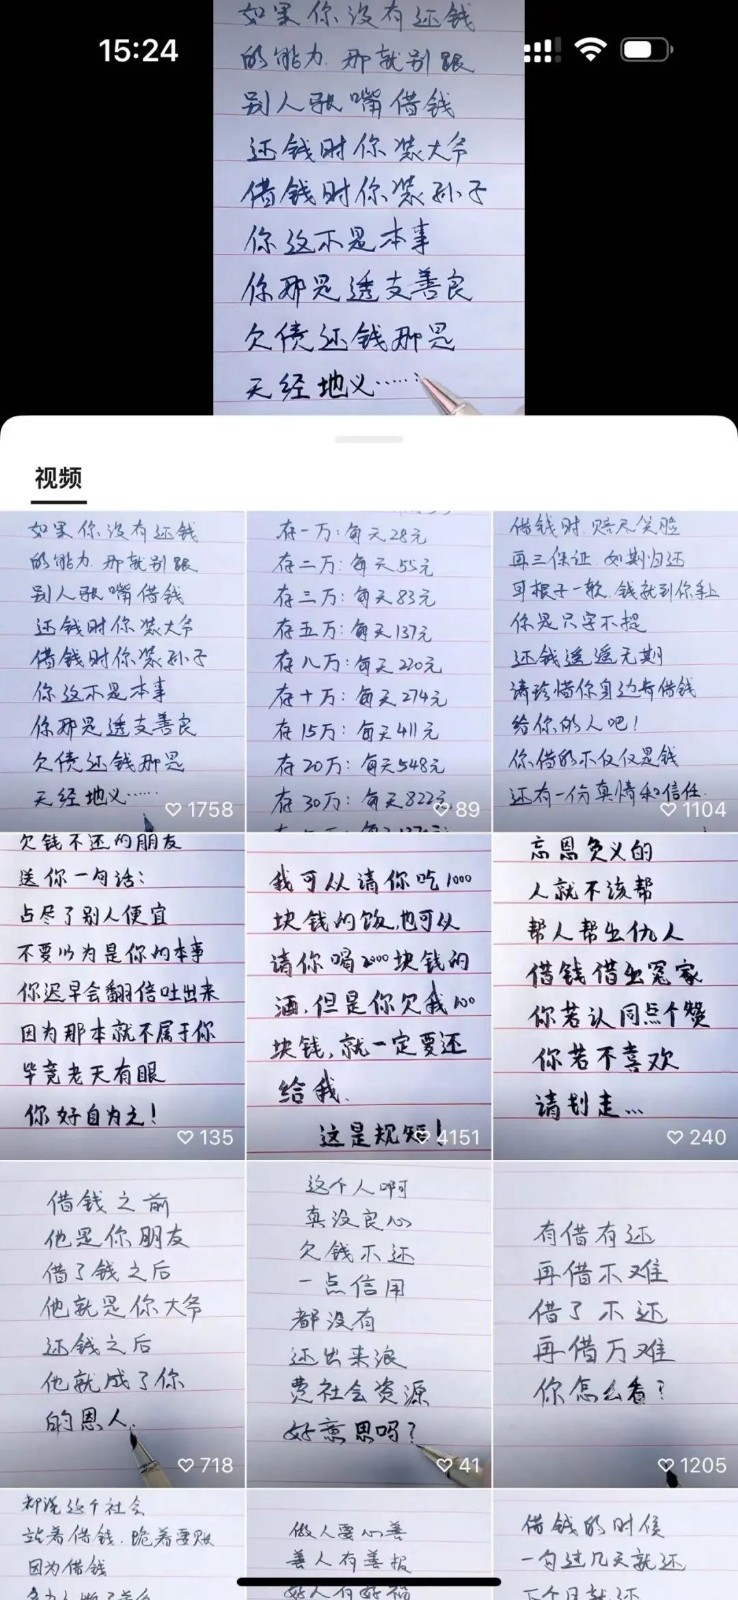 15:24
如果你没有还钱
的能力.那就别跟
别人张嘴借钱
还钱时你装大爷
借钱时你装孙子
你这不是本事
你那是透支善良
欠债还钱那是
天经地义……
视频
如果你没有还钱
的能力.那就别跟
别人张嘴借钱
还钱时你装大爷
借钱时你装孙子
你这不是本事
你那是透支善良
欠债还钱那是
天经地义……
1758
存一万：每天28元
存二万：每天55元
存三万：每天83元
存五万：每天137元
存八万：每天220元
存十万：每天274元
存15万：每天411元
存20万：每天548元
存30万：每天822元
89
借钱时.赔尽笑脸
再三保证.如期归还
耳根子一软.钱就到你手上
你是只字不提
还钱遥遥无期
请珍惜你身边每借钱
给你的人吧！
你借的不仅仅是钱
还有一份真情和信任
1104
欠钱不还的朋友
送你一句话：
占尽了别人便宜
不要以为是你的本事
你迟早会翻倍吐出来
因为那本就不属于你
毕竟老天有眼
你好自为之！
135
我可以请你吃1000
块钱的饭.也可以
请你喝2000块钱的
酒.但是你欠我100
块钱.就一定要还
给我.
这是规矩！
4151
忘恩负义的
人就不该帮
帮人帮出仇人
借钱借出冤家
你若认同点个赞
你若不喜欢
请划走…
240
借钱之前
他是你朋友
借了钱之后
他就是你大爷
还钱之后
他就成了你
的恩人.
718
这个人啊
真没良心
欠钱不还
一点信用
都没有
还出来浪
费社会资源
好意思吗？
41
有借有还
再借不难
借了不还
再借万难
你怎么看？
1205
却说这个社会
站着借钱.跪着要账
因为借钱
做人要心善
善人有善报
好人有好福
借钱的时候
一句过几天就还
下个月就还